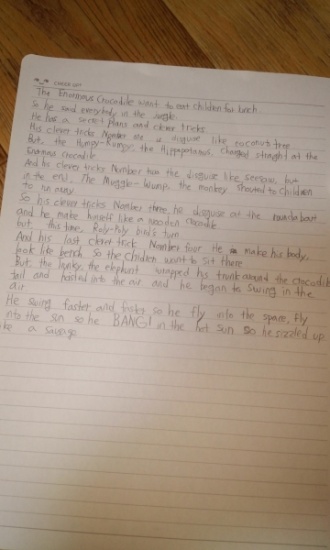 The Enormous Crocodile want to eat children for lunch.
So he said everybody in the jungle.
He has a secret plans and clever tricks.
His clever tricks Number one is disguise like coconuts tree
But, the Humpy-Rumpy, the Hippopotamus, charged straight at the
Enormous crocodile
And his clever tricks Number two the disguise like seesaw, but
in the end, The Muggle-Wump, the monkey shouted to children
to run away.
So his clever tricks Number three, he disguise at the roundabout
and he make himself like a wooden crocodile.
but, this time, Roly-Poly bird's turn
And his last clever trick Number four He make his body
look like bench So the Children want to sit there
But, the elephant wrapped his trunk around the crocodile
tail and hoisted into the air and he began to swing in the
air
He swing faster and faster so he fly into the space, fly
into the sun so he BANG! in the hot sun so he sizzled up
like a sausage